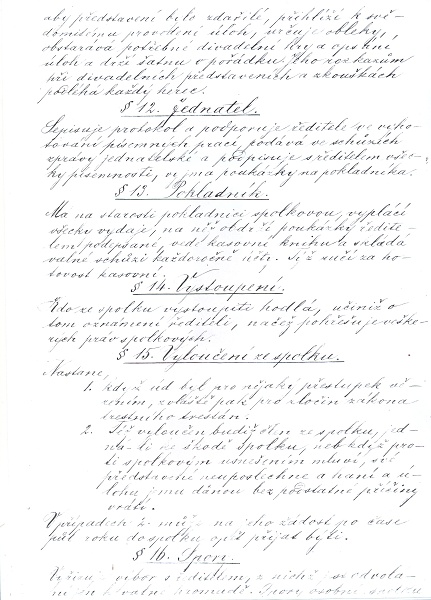 aby představení bylo zdařilé, přihlíží k svě-
domitému provedení úloh, určuje obleky,
obstarává potřebné divadelní hry a opsání
úloh a drží šatnu v pořádku. Jeho rozkazům
při divadelních představeních a zkouškách
podléhá každý herec.
§ 12. Jednatel.
Sepisuje protokol a podporuje ředitele ve vyho-
tovování písemných prací, podává ve schůzích
zprávy jednatelské a podpisuje s ředitelem všec-
ky písemnosti, vyjma poukázky na pokladníka.
§ 13. Pokladník.
Má na starosti pokladnici spolkovou, vyplácí
všecky vydaje, na něž obdrží poukázky ředite-
lem podepsané, vede kasovní knihu a skládá
valné schůzi každoročně účty. Též ručí za ho-
tovost kasovní.
§ 14. Vystoupení.
Kdo ze spolku vystoupiti hodlá, učiniž o
tom oznámení řediteli, načež pohřešuje veške-
rých práv spolkových.
§ 15. Vyloučení ze spolku.
Nastane,
1. když úd byl pro nějaký přestupek vě-
zením, zvláště pak pro zločin zákona
trestního trestán.
2. Též vyloučen budiž člen ze spolku, jed-
ná-li ve škodě spolku, neb když pro-
ti spolkovým usnešením mluví,
představené neuposlechne a haní a ú-
lohu jemu danou bez podstatné příčiny
vrátí.
V případech 2. může na jeho žádost po čase
půl roku do spolku opět přijat býti.
§ 16. Spory.
Vyřizuje výbor s ředitelem, z nichž se odvolá-
ní k valné hromadě. Spory osobní